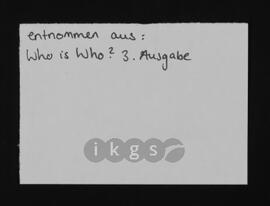 entnommen aus:
Who is Who? 3. Ausgabe
ikgs